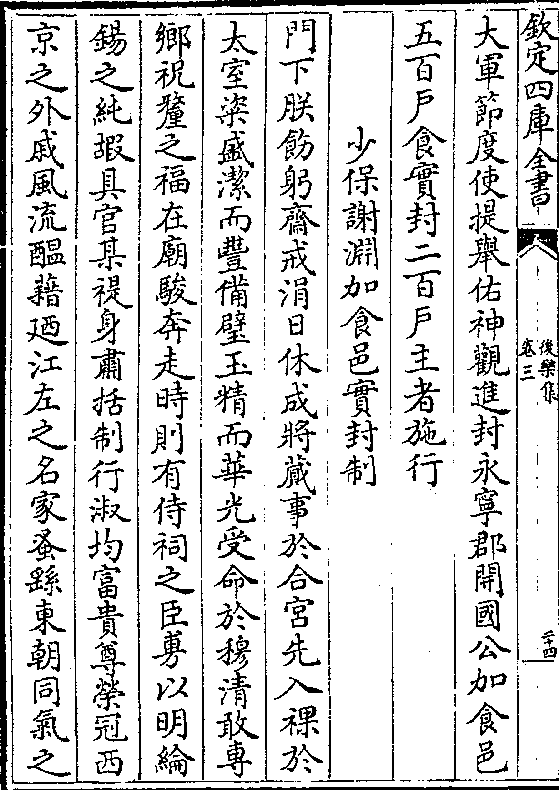 欽定四庫全書
後樂集
卷三
二十四
大軍節度使提舉佑神觀進封永寧郡開國公加食邑
五百戶食實封二百戶主者施行
少保謝淵加食邑實封制
門下朕飭躬齋戒涓日休成將蕆事於合宮先入祼於
太室粢盛潔而豐備璧玉精而華光受命於穆清敢專
鄉祝釐之福在廟駿奔走時則有侍祠之臣旉以明綸
錫之純嘏具官某禔身肅括制行淑均富貴尊榮冠西
京之外戚風流醖藉廼江左之名家蚤繇東朝同氣之